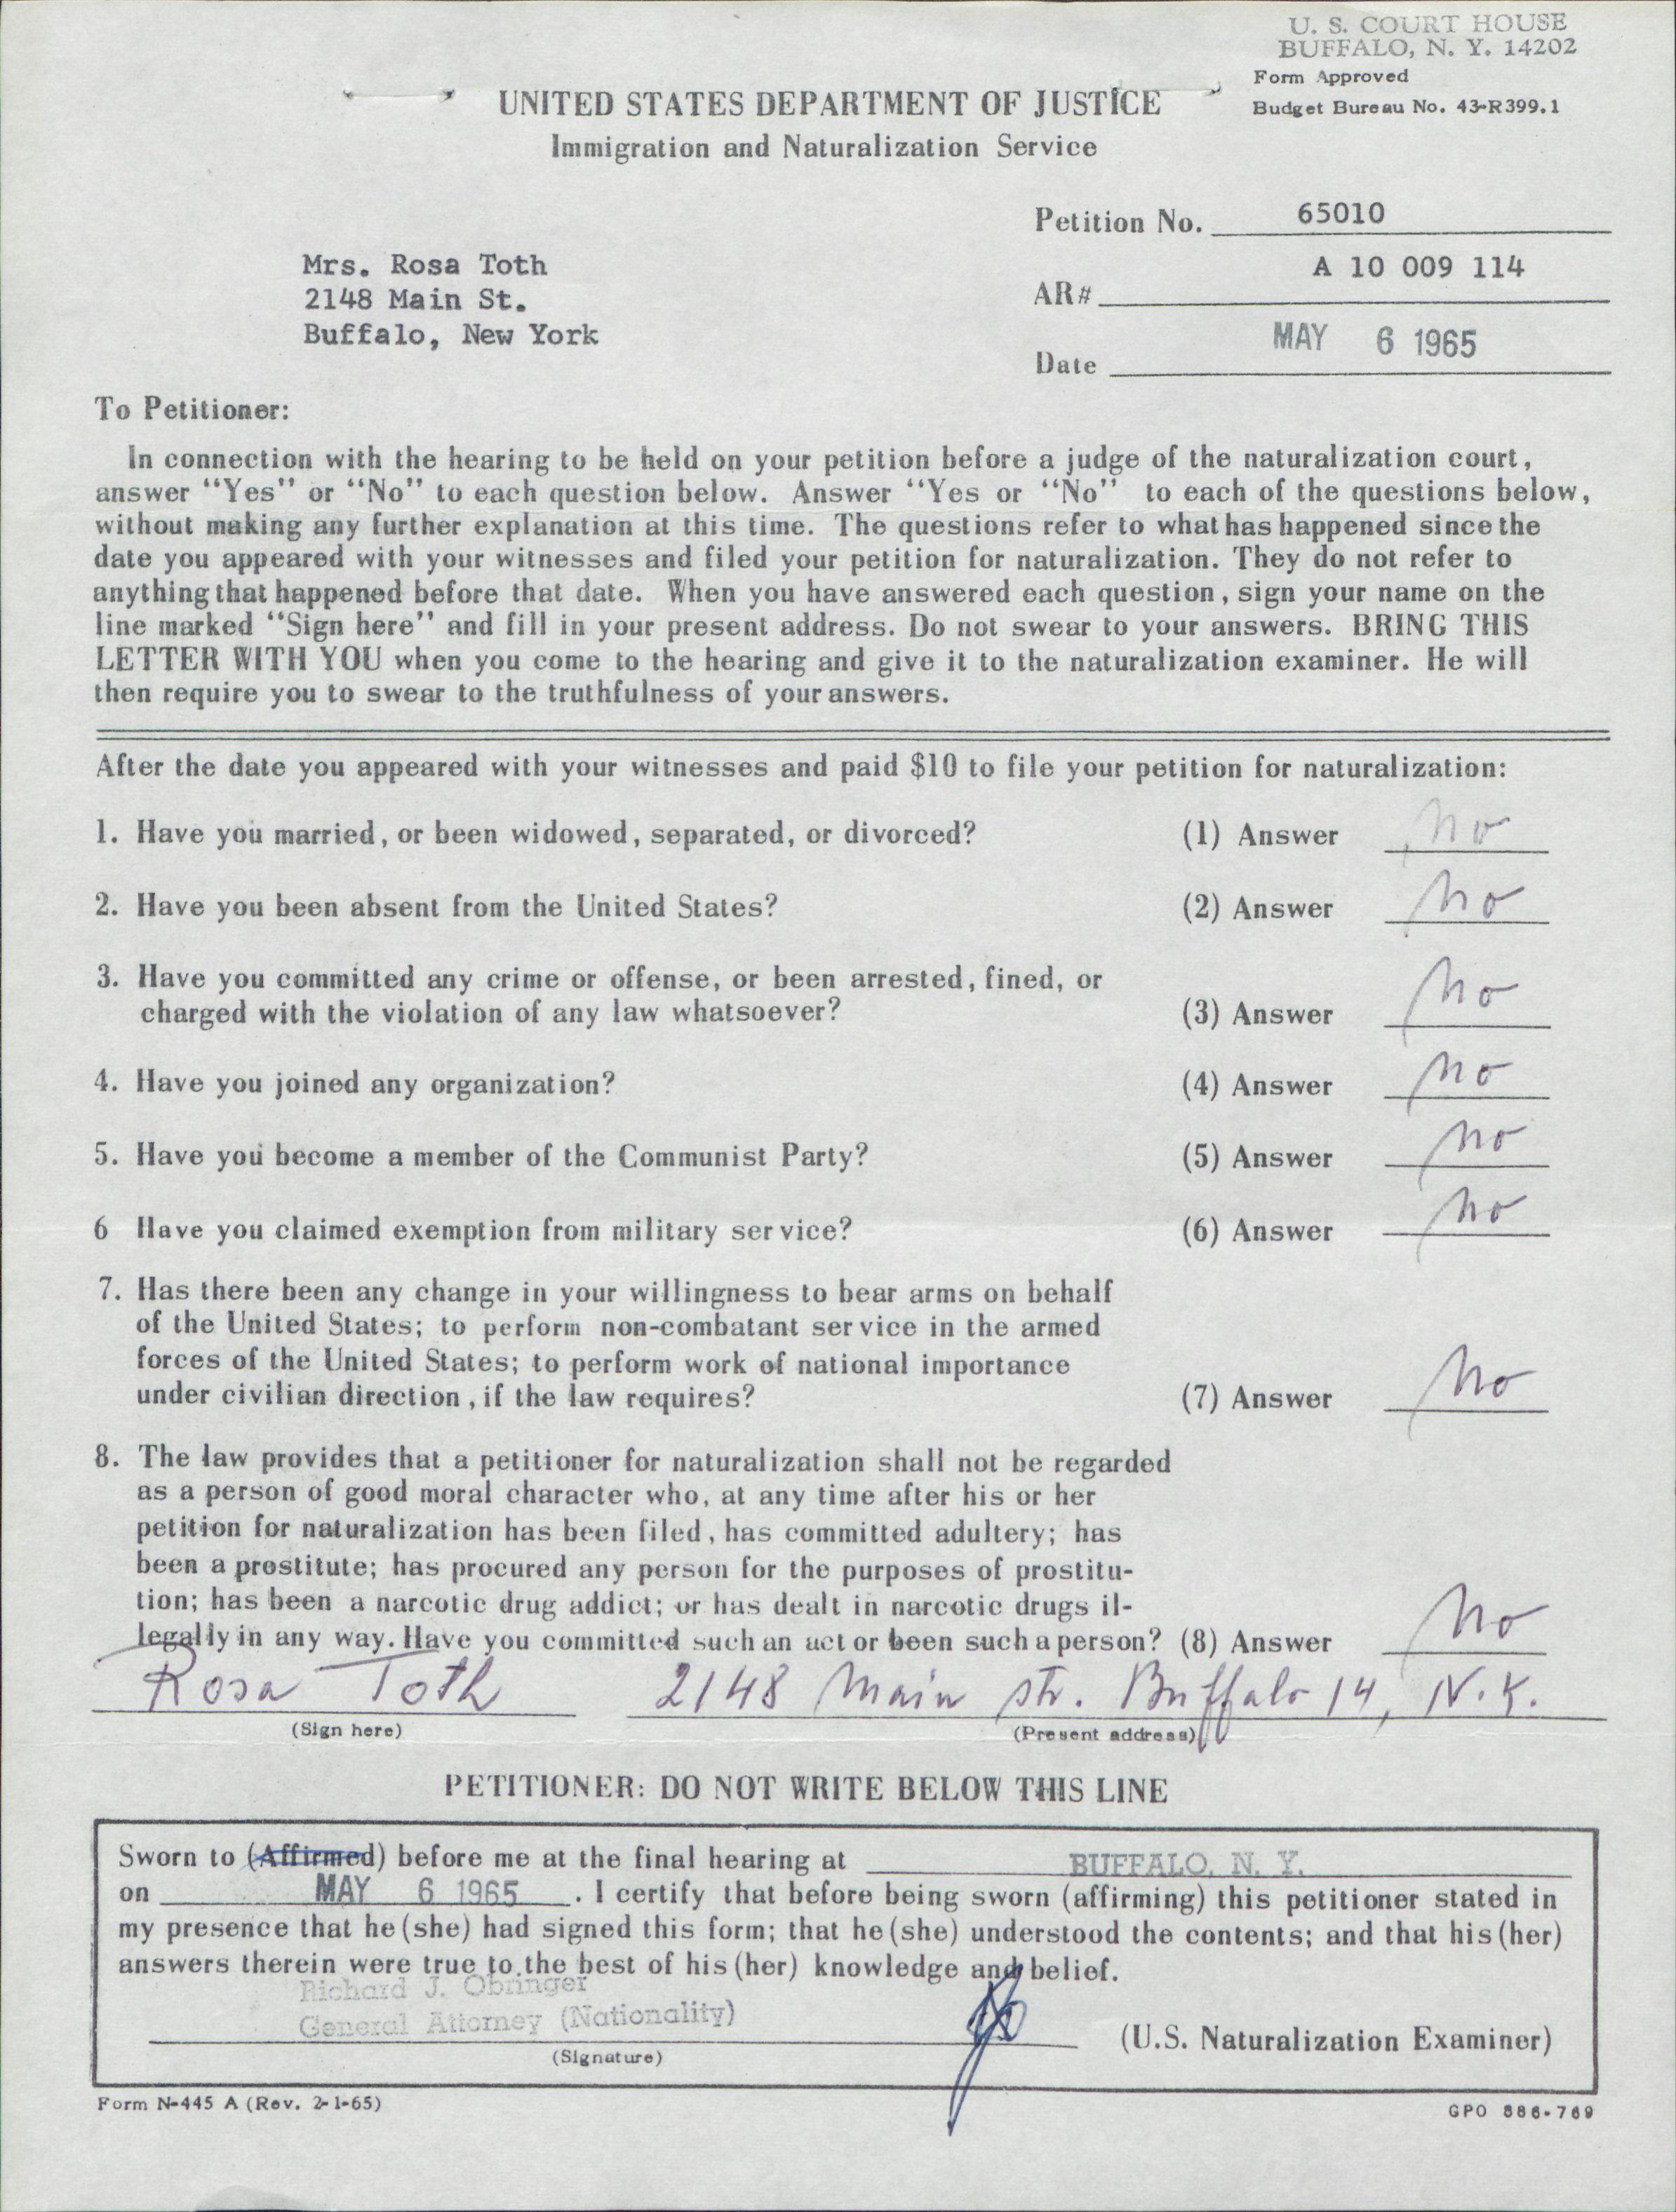 U. S. COURT HOUSE
BUFFALO, N. Y. 14202
Form Approved
Budget Bureau No. 43-R399.1
UNITED STATES DEPARTMENT OF JUSTICE
Immigration and Naturalization Service
Petition No. 65010
Mrs. Rosa Toth
2148 Main St.
Buffalo, New York
AR# A 10 009 114
Date MAY 6 1965
To Petitioner:
In connection with the hearing to be held on your petition before a judge of the naturalization court,
answer "Yes" or "No" to each question below. Answer "Yes or "No" to each of the questions below,
without making any further explanation at this time. The questions refer to what has happened since the
date you appeared with your witnesses and filed your petition for naturalization. They do not refer to
anything that happened before that date. When you have answered each question, sign your name on the
line marked "Sign here" and fill in your present address. Do not swear to your answers. BRING THIS
LETTER WITH YOU when you come to the hearing and give it to the naturalization examiner. He will
then require you to swear to the truthfulness of your answers.
After the date you appeared with your witnesses and paid $10 to file your petition for naturalization:
1. Have you married, or been widowed, separated, or divorced? (1) Answer No
2. Have you been absent from the United States? (2) Answer No
3. Have you committed any crime or offense, or been arrested, fined, or
charged with the violation of any law whatsoever? (3) Answer No
4. Have you joined any organization? (4) Answer No
5. Have you become a member of the Communist Party? (5) Answer No
6 Have you claimed exemption from military service? (6) Answer No
7. Has there been any change in your willingness to bear arms on behalf
of the United States; to perform non-combatant service in the armed
forces of the United States; to perform work of national importance
under civilian direction, if the law requires? (7) Answer No
8. The law provides that a petitioner for naturalization shall not be regarded
as a person of good moral character who, at any time after his or her
petition for naturalization has been filed, has committed adultery; has
been a prostitute; has procured any person for the purposes of prostitu-
tion; has been a narcotic drug addict; or has dealt in narcotic drugs il-
legally in any way. Have you committed such an act or been such a person? (8) Answer No
Rosa Toth 2148 Main str. Buffalo 14, N.Y.
(Sign here) (Present address)
PETITIONER: DO NOT WRITE BELOW THIS LINE
Sworn to (Affirmed) before me at the final hearing at BUFFALO, N. Y.
on MAY 6 1965. I certify that before being sworn (affirming) this petitioner stated in
my presence that he (she) had signed this form; that he (she) understood the contents; and that his (her)
answers therein were true to the best of his (her) knowledge and belief.
Richard J. Obringer
General Attorney (Nationality)
(U.S. Naturalization Examiner)
(Signature)
Form N-445 A (Rev. 2-1-65)
GPO 886-769